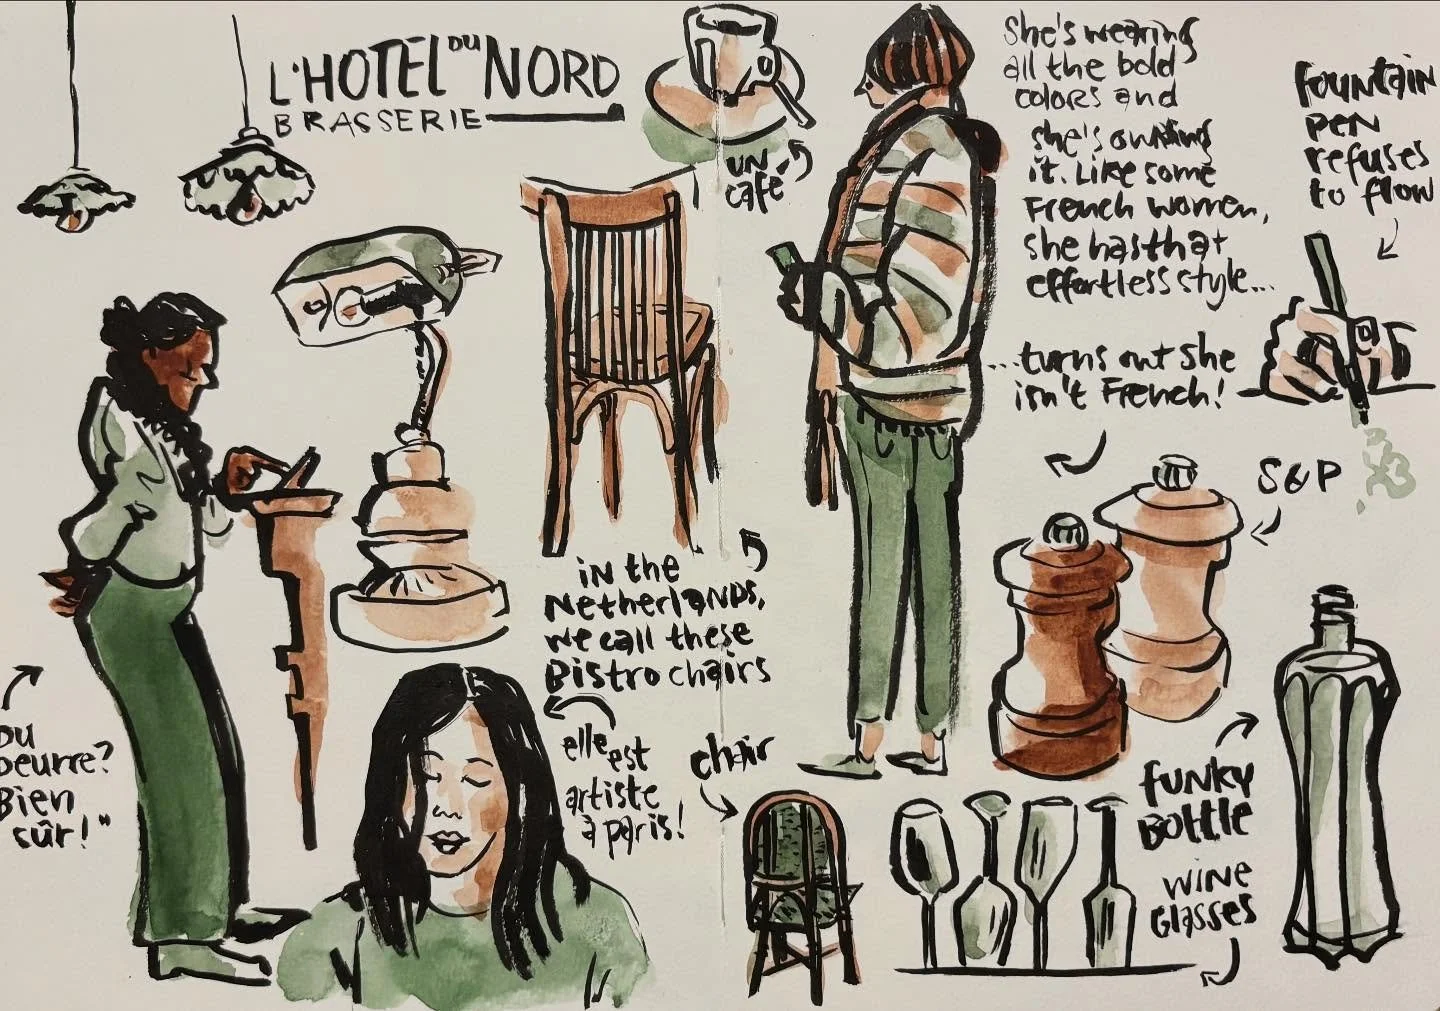 L'HOTEL DU NORD
BRASSERIE
UN
café
She's wearing
all the bold
colors and
she's owning
it. Like some
French women,
she has that
effortless style...
...turns out she
isn't French!
fountain
pen
refuses
to flow
S&P
in the
Netherlands,
we call these
Bistro chairs
elle est
artiste
à paris!
chair
DU
beurre?
Bien
sûr!"
funky
Bottle
wine
Glasses